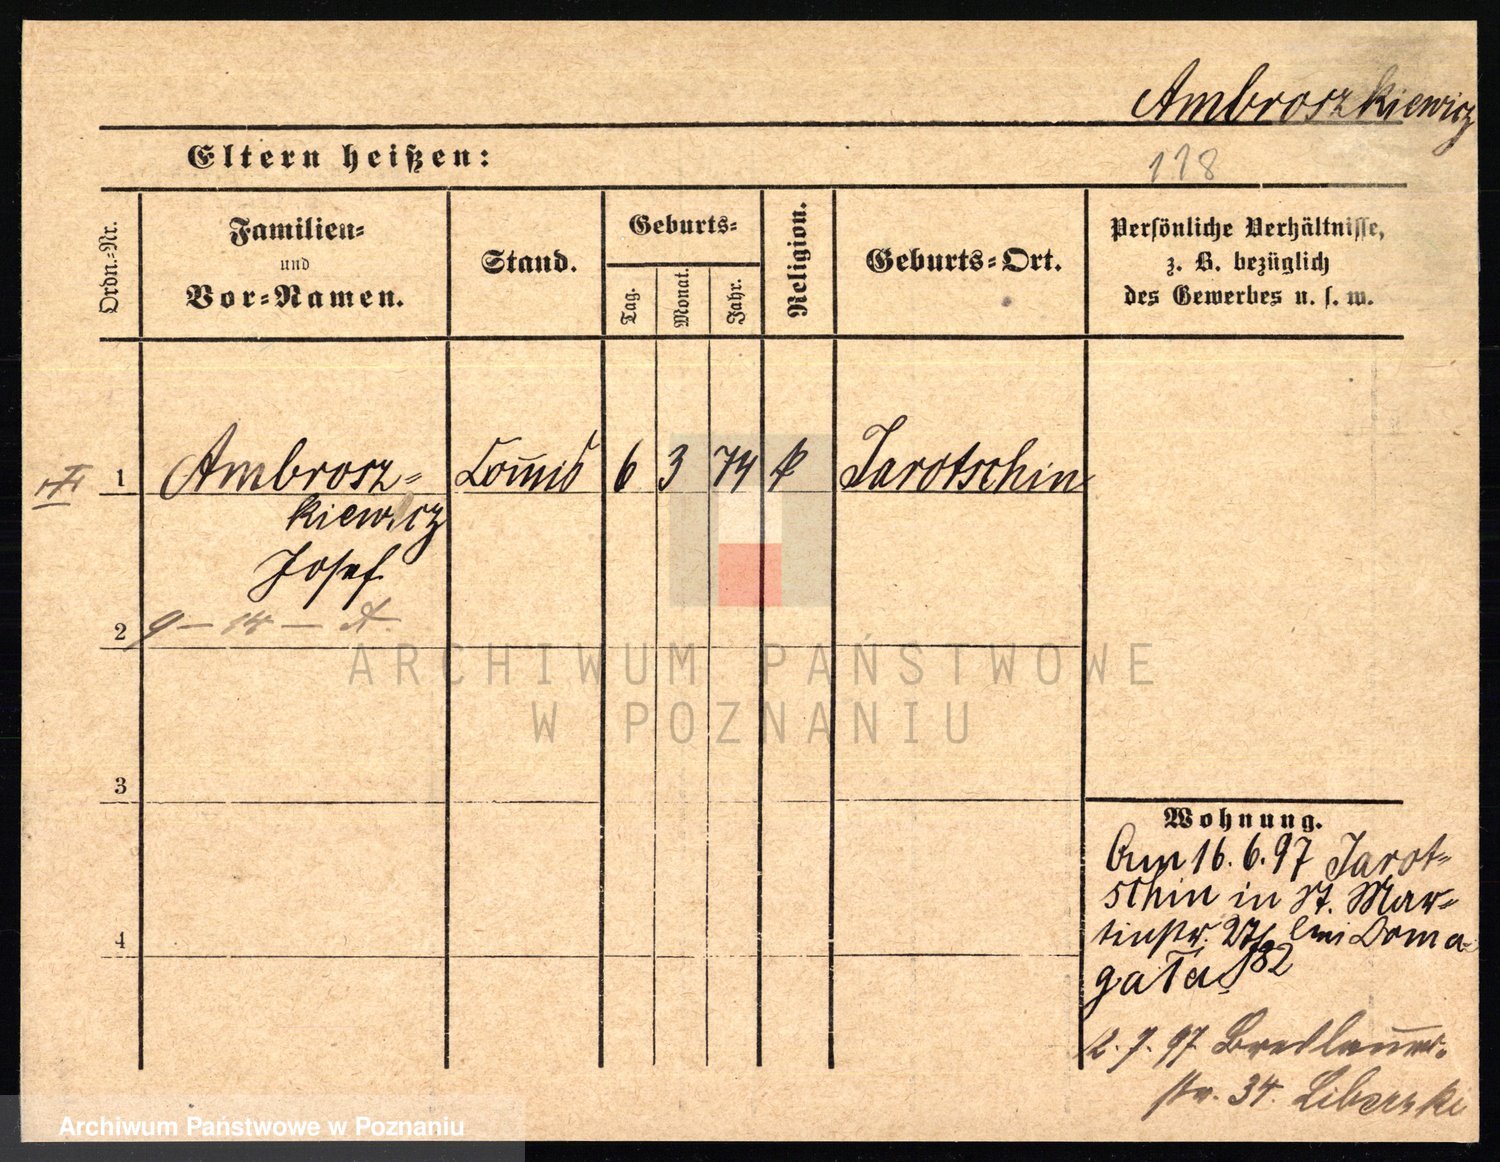 Ambroszkiewicz
Eltern heißen:
118
Ordn.-Nr.
Familien-
und
Vor-Namen.
Stand.
Geburts-
Tag.
Monat.
Jahr.
Religion.
Geburts-Ort.
Persönliche Verhältnisse,
z. B. bezüglich
des Gewerbes u. s. w.
1 Ambrosz- Commis 6 3 74 k Jarotschin
kiewicz
Josef
2 9 – 14 – A.
3
4
Wohnung.
16.6.97 Jarot-
schin in St. Mar-
tinstr. 27/ bei Doma-
gała 82
2.7.97
str. 34. Liberski
ARCHIWUM PAŃSTWOWE
W POZNANIU
Archiwum Państwowe w Poznaniu